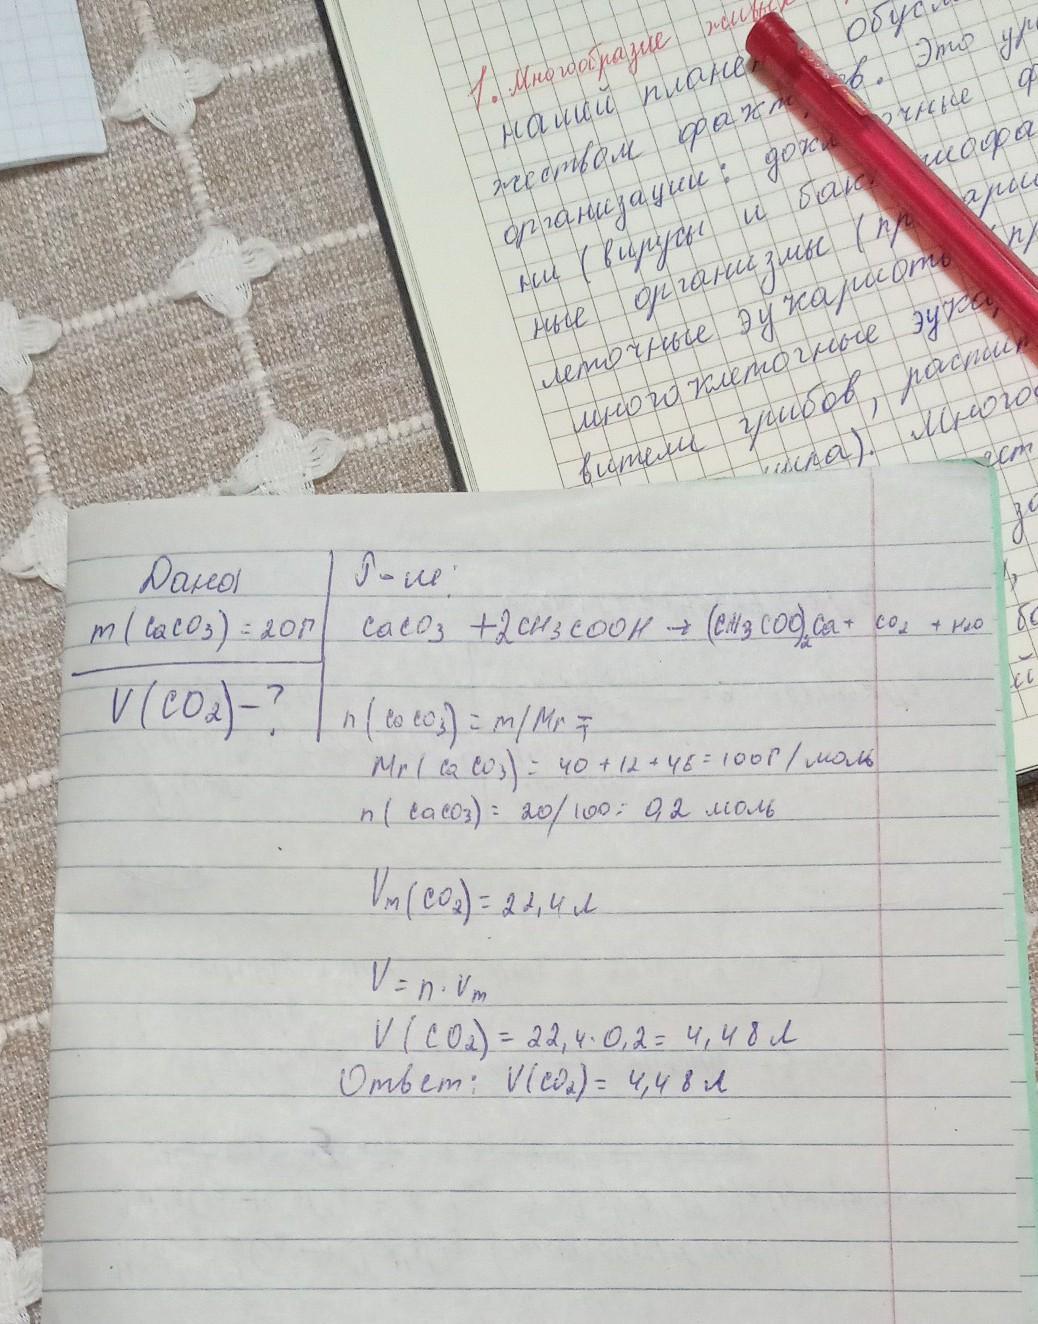 1. Многообразие живых
нашей планеты обусл
жеством факт ов. Это ур
организации: докл очные ф
ни (вирусы и бак иофа
ные организмы (пр арио
леточные эукариоты пр
многоклеточные эука
вители грибов, растит
Много
ест
Дано
m(CaCO3) = 20г
V(CO2) - ?
Р-ие:
CaCO3 + 2CH3COOH → (CH3COO)2Ca + CO2 + H2O
n(CaCO3) = m/Mr =
Mr(CaCO3) = 40 + 12 + 48 = 100г/моль
n(CaCO3) = 20/100 = 0,2 моль
Vm(CO2) = 22,4 л
V = n · Vm
V(CO2) = 22,4 · 0,2 = 4,48 л
Ответ: V(CO2) = 4,48 л